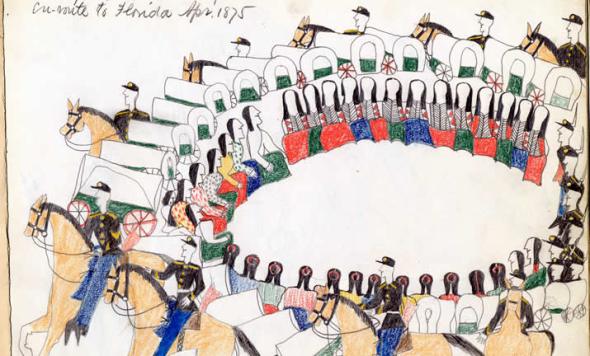 en-route to Florida Apr. 1875